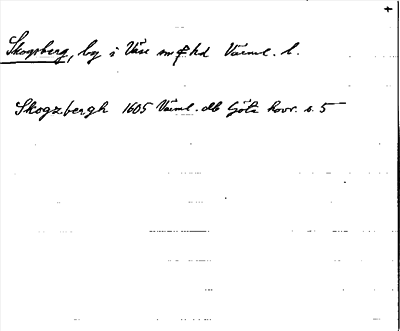 Skogsberg, by i Väse sn o hd Värml. l.
Skogzbergh 1605 Värml. db Göta hovr. s. 5